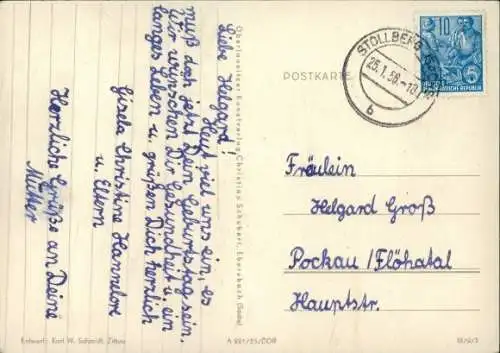 Liebe Helgard!
Heut viel uns ein, es
muß doch jetzt Dein Geburtstag sein.
Wir wünschen Dir Gesundheit u. ein
langes Leben u. grüßen Dich herzlich
Gisela Christine Hannelore
u. Eltern
Herzliche Grüße an Deine
Mutter
Oberlausitzer Kunstverlag Christian Schubert, Ebersbach (Sachs)
Entwurf: Karl W. Schmidt, Zittau
A 221/55/DDR
POSTKARTE
STOLLBERG
25.1.56.-18
b
10
5
Fräulein
Helgard Groß
Pockau/Flöhatal
Hauptstr.